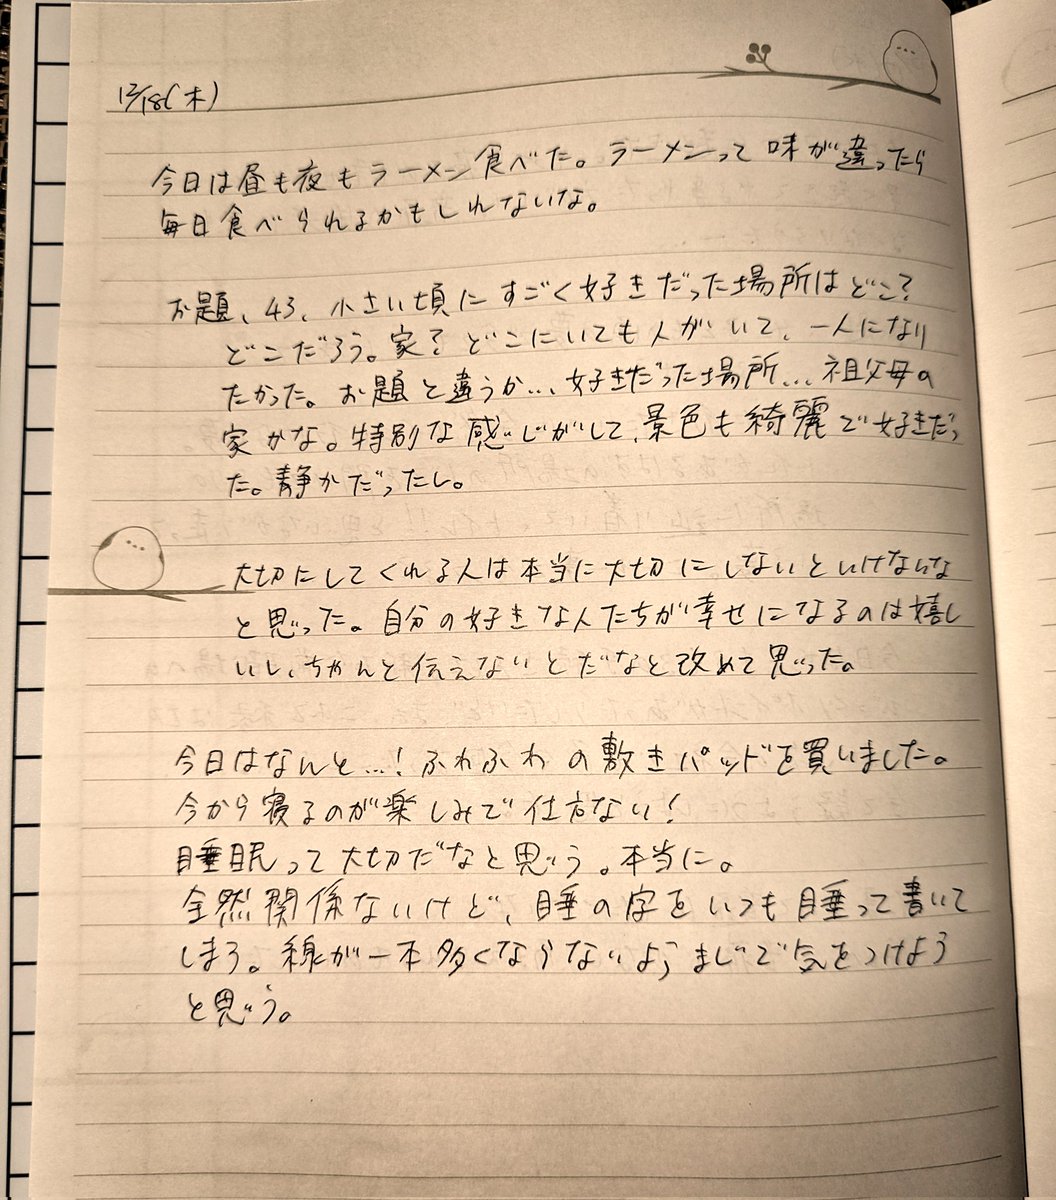 12/18(木)
今日は昼も夜もラーメン食べた。ラーメンって味が違ったら
毎日食べられるかもしれないな。
お題、43、小さい頃にすごく好きだった場所はどこ?
どこだろう。家?どこにいても人がいて、一人になり
たかった。お題と違うか...好きだった場所...祖父母の
家かな。特別な感じがして、景色も綺麗で好きだっ
た。静かだったし。
大切にしてくれる人は本当に大切にしないといけないな
と思った。自分の好きな人たちが幸せになるのは嬉し
いし、ちゃんと伝えないとだなと改めて思った。
今日はなんと...!ふわふわの敷きパッドを買いました。
今から寝るのが楽しみで仕方ない!
睡眠って大切だなと思う。本当に。
全然関係ないけど、睡の字をいつも睡って書いて
しまう。線が一本多くならないようまじで気をつけよう
と思う。